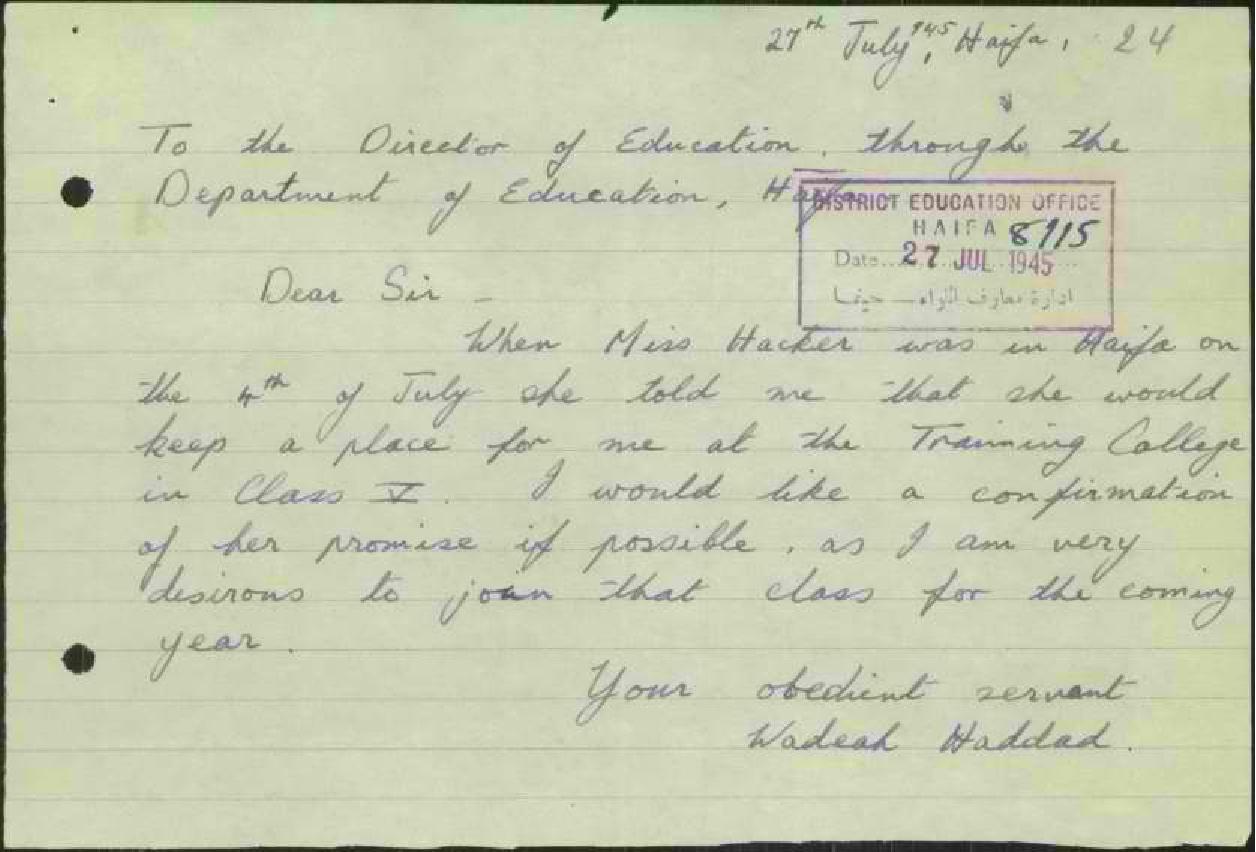 27th July, 945 Haifa, 24
To the Director of Education, through the
Department of Education, Haifa
DISTRICT EDUCATION OFFICE
HAIFA 8915
Date.....27 JUL 1945...
ادارة معارف اللواء – حيفا
Dear Sir –
When Miss Hacker was in Haifa on
the 4th of July she told me that she would
keep a place for me at the Trainning College
in Class V. I would like a confirmation
of her promise if possible, as I am very
desirous to join that class for the coming
year.
Your obedient servant
Wadeah Haddad.